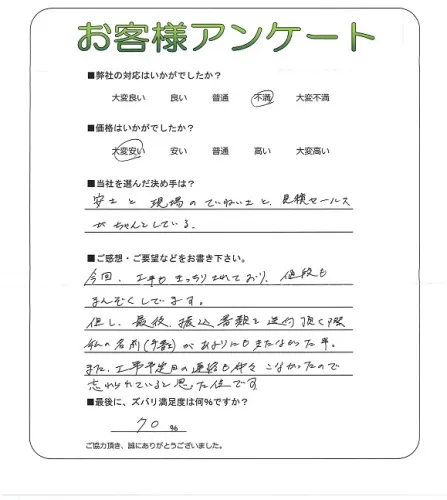 お客様アンケート
■弊社の対応はいかがでしたか？
大変良い 良い 普通 不満 大変不満
■価格はいかがでしたか？
大変安い 安い 普通 高い 大変高い
■当社を選んだ決め手は？
安さと現場のていねいさと、見積セールス
がちゃんとしている。
■ご感想・ご要望などをお書き下さい。
今回、工事もきっちりされており、値段も
まんぞくしています。
但し、最後、振込書類を送付頂く際
私の名前(字数)があまりにもきたなかった事。
また、工事予定日の連絡も中々こなかったので
忘れられていると思った位です
■最後に、ズバリ満足度は何%ですか？
70 %
ご協力頂き、誠にありがとうございました。